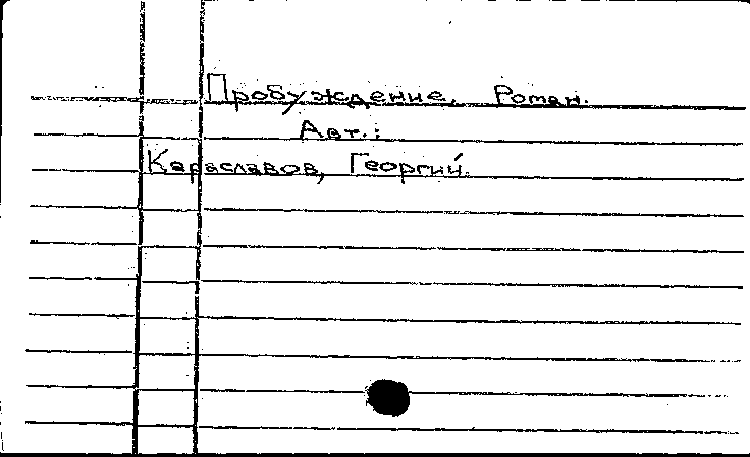 Пробуждение. Роман.
Авт.:
Караславов, Георгий.